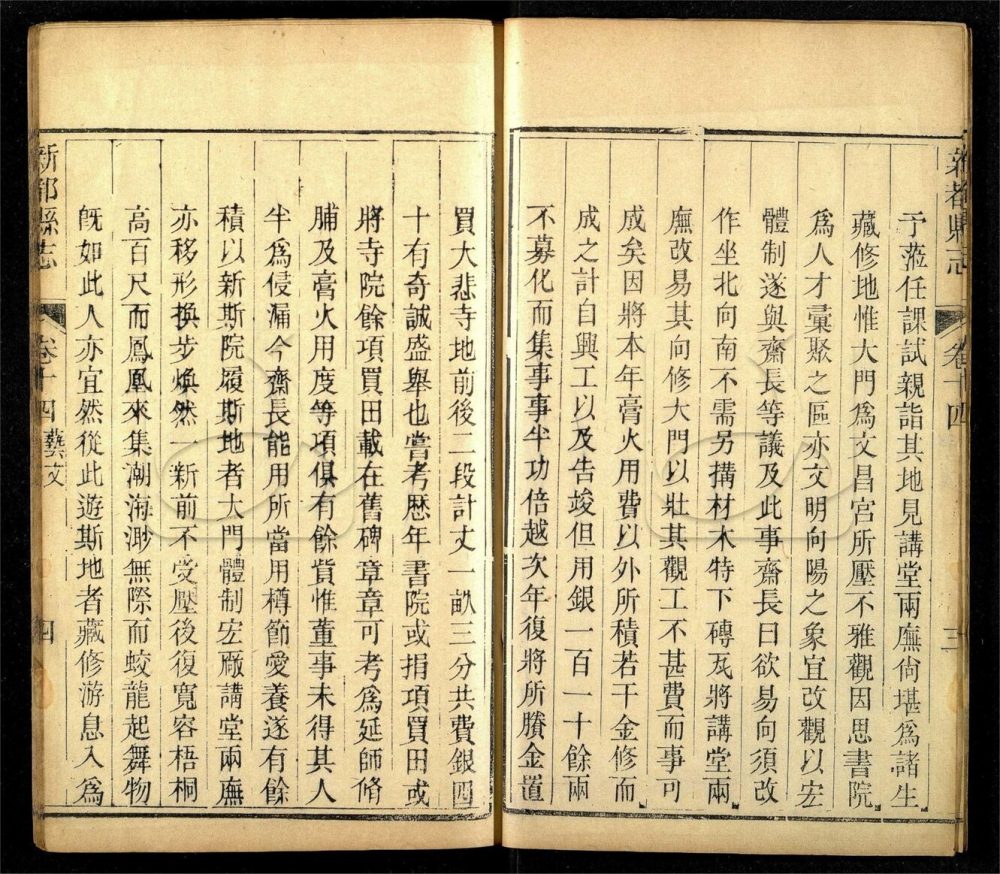 新都縣志
卷十四
三
予蒞任課試親詣其地見講堂兩廡尙堪爲諸生
藏修地惟大門爲文昌宮所壓不雅觀因思書院
爲人才彙聚之區亦文明向陽之象宜改觀以宏
體制遂與齋長等議及此事齋長曰欲易向須改
作坐北向南不需另搆材木特下磚瓦將講堂兩
廡改易其向修大門以壯其觀工不甚費而事可
成矣因將本年膏火用費以外所積若干金修而
成之計自興工以及告竣但用銀一百一十餘兩
不募化而集事事半功倍越次年復將所賸金置
買大悲寺地前後二段計丈一畝三分共費銀四
十有奇誠盛舉也嘗考歷年書院或捐項買田或
將寺院餘項買田載在舊碑章章可考爲延師脩
脯及膏火用度等項俱有餘貲惟董事未得其人
半爲侵漏今齋長能用所當用樽節愛養遂有餘
積以新斯院履斯地者大門體制宏厰講堂兩廡
亦移形換步煥然一新前不受壓後復寬容梧桐
高百尺而鳳凰來集潮海渺無際而蛟龍起舞物
旣如此人亦宜然從此遊斯地者藏修游息入爲
新都縣志
卷十四藝文
四